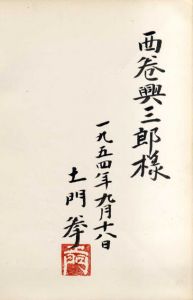 西卷興三郎様
一九五四年九月十八日
土門拳